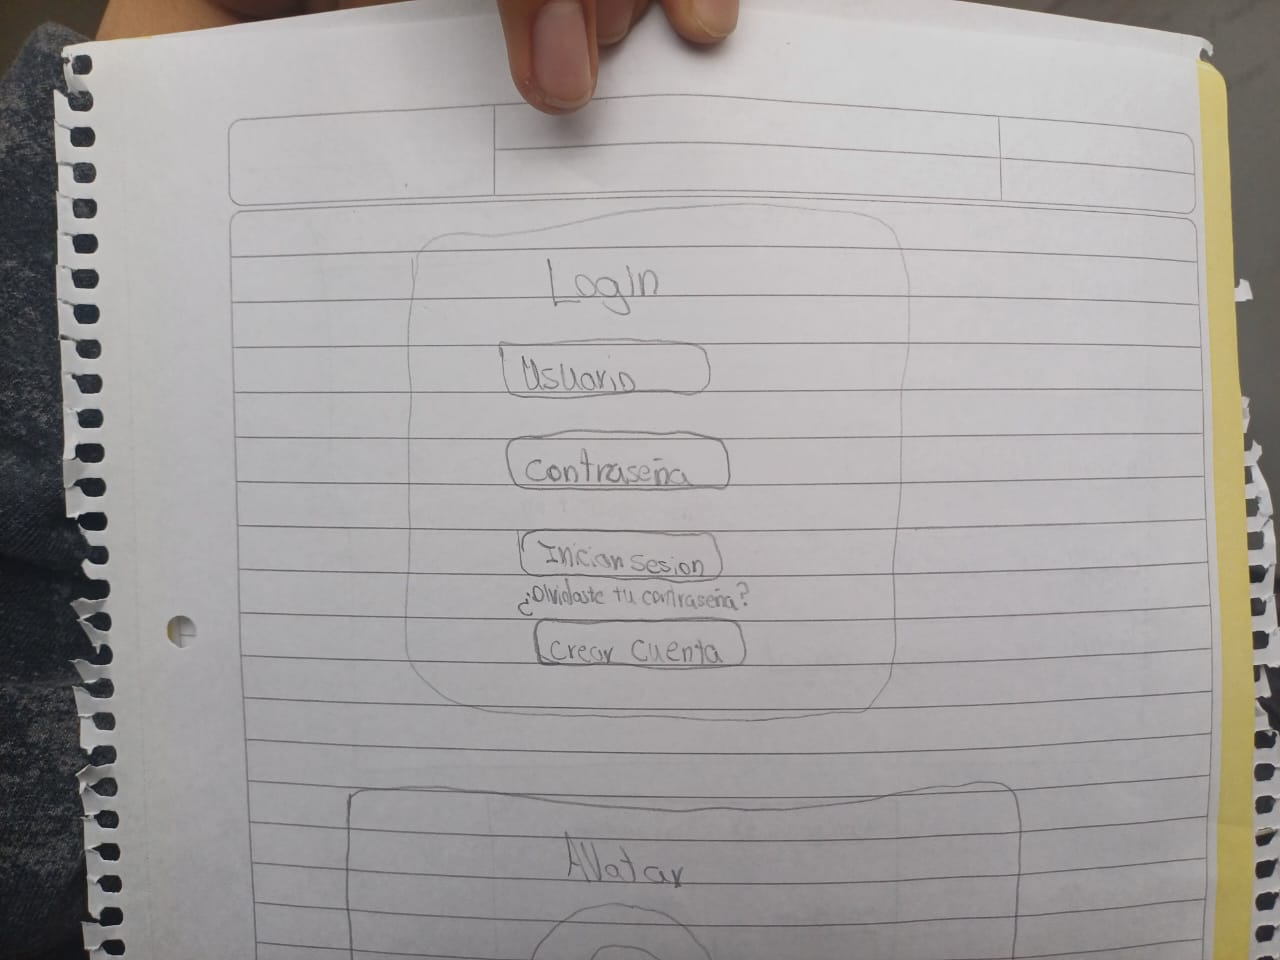 Login
Usuario
Contraseña
Inician sesion
¿Olvidaste tu contraseña?
Crear cuenta
Avatar